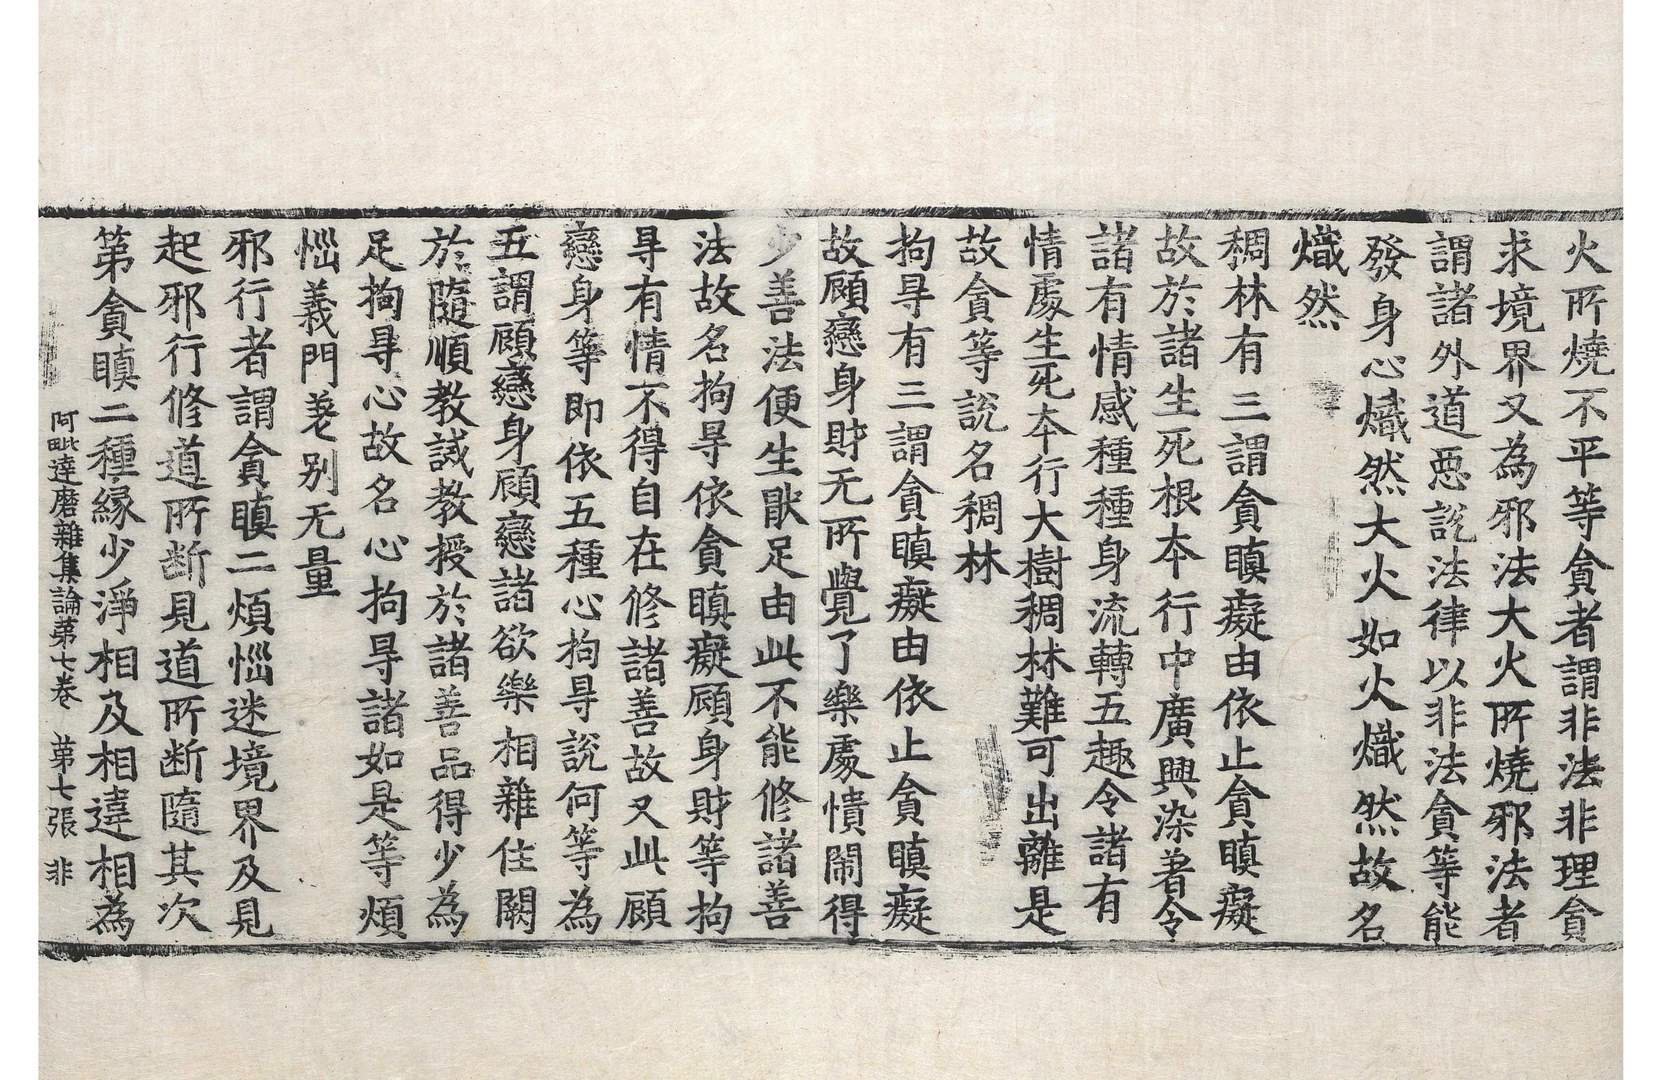 火所燒不平等貪者謂非法非理貪
求境界又為邪法大火所燒邪法者
謂諸外道惡說法律以非法貪等能
發身心熾然大火如火熾然故名
熾然
稠林有三謂貪瞋癡由依止貪瞋癡
故於諸生死根本行中廣興染著令
諸有情感種種身流轉五趣令諸有
情處生死本行大樹稠林難可出離是
故貪等說名稠林
拘㝵有三謂貪瞋癡由依止貪瞋癡
故顧戀身財无所覺了樂處憒閙得
少善法便生猒足由此不能修諸善
法故名拘㝵依貪瞋癡顧身財等拘
㝵有情不得自在修諸善故又此顧
戀身等即依五種心拘㝵說何等為
五謂顧戀身顧戀諸欲樂相雜住闕
於隨順教誡教授於諸善品得少為
足拘㝵心故名心拘㝵諸如是等煩
惱義門差别无量
邪行者謂貪瞋二煩惱迷境界及見
起邪行修道所断見道所断隨其次
第貪瞋二種緣少淨相及相違相為
阿毗達磨雜集論苐七卷 苐七張 非